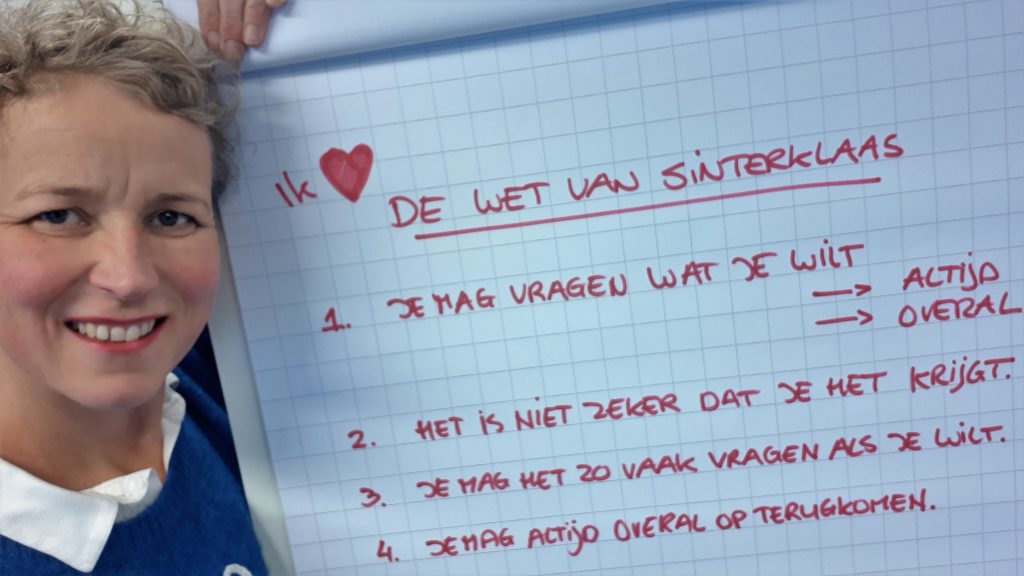 Ik ❤ DE WET VAN SINTERKLAAS
1. JE MAG VRAGEN WAT JE WILT
→ ALTIJD
→ OVERAL
2. HET IS NIET ZEKER DAT JE HET KRIJGT.
3. JE MAG HET ZO VAAK VRAGEN ALS JE WILT.
4. JE MAG ALTIJD OVERAL OP TERUGKOMEN.